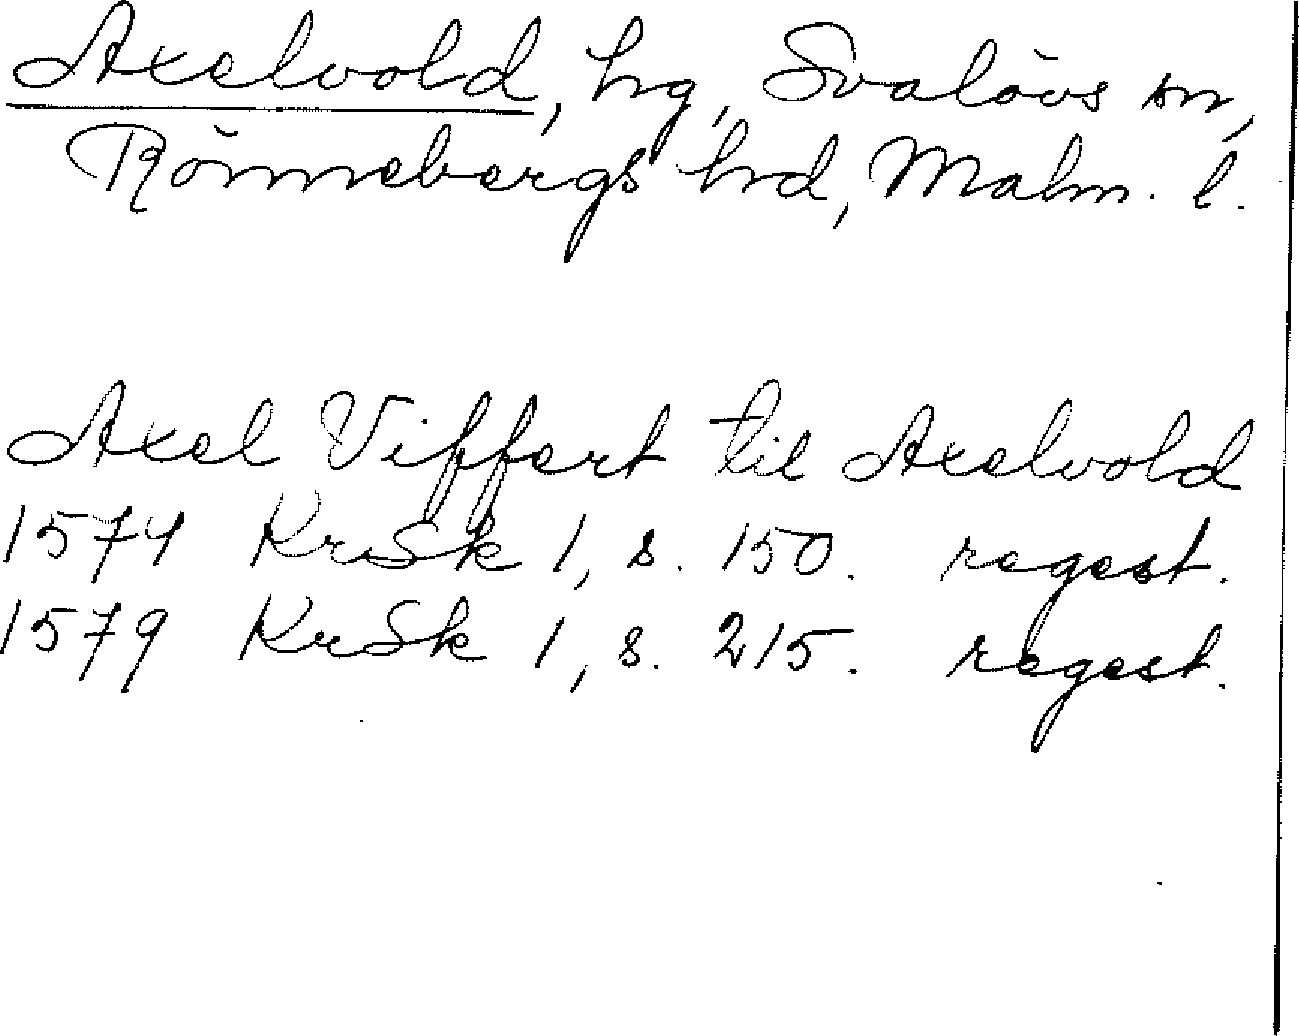 Axelvold, hg, Svalövs sn,
Rönnebergs hrd, Malm. l.
Axel Viffert til Axelvold
1574 KrSk 1, s. 150. regest.
1579 KrSk 1, s. 215. regest.